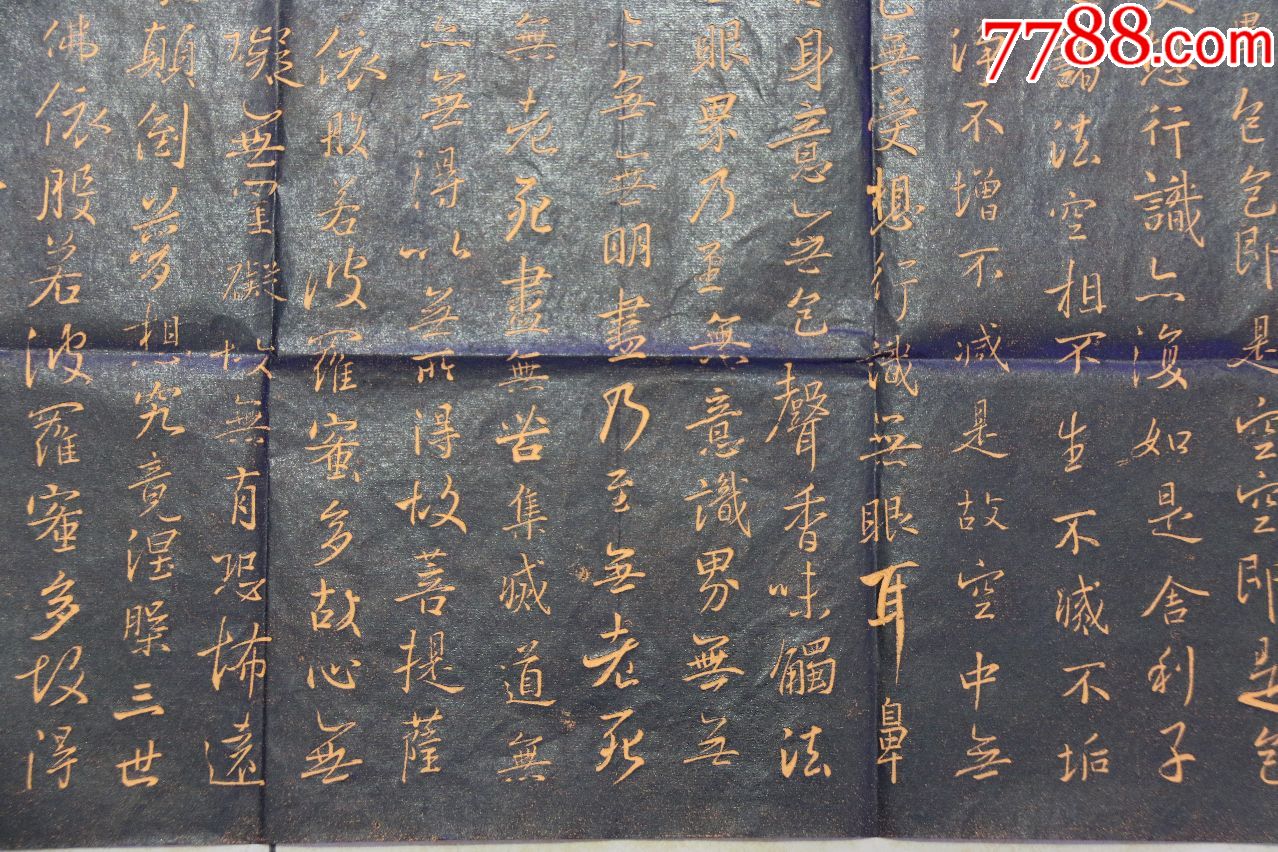 7788.com
色色即是空空即是色
想行識亦復如是舍利子
諸法空相不生不滅不垢
淨不增不減是故空中無
色無受想行識無眼耳鼻
身意無色聲香味觸法
眼界乃至無意識界無無
亦無無明盡乃至無老死
無老死盡無苦集滅道無
亦無得以無所得故菩提薩
依般若波羅蜜多故心無
礙無罣礙故無有恐怖遠
顛倒夢想究竟涅槃三世
佛依般若波羅蜜多故得